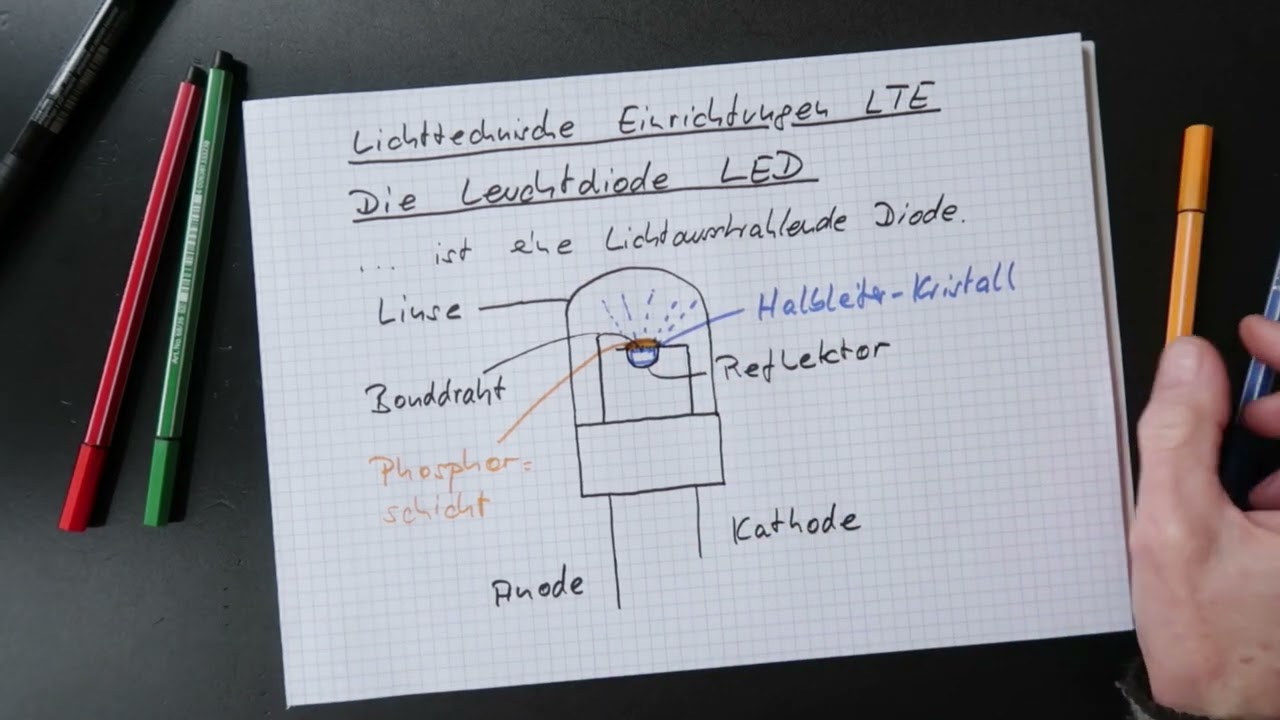 Lichttechnische Einrichtungen LTE
Die Leuchtdiode LED
... ist eine Lichtausstrahlende Diode.
Linse
Halbleiter-Kristall
Reflektor
Bonddraht
Phosphor=
schicht
Kathode
Anode